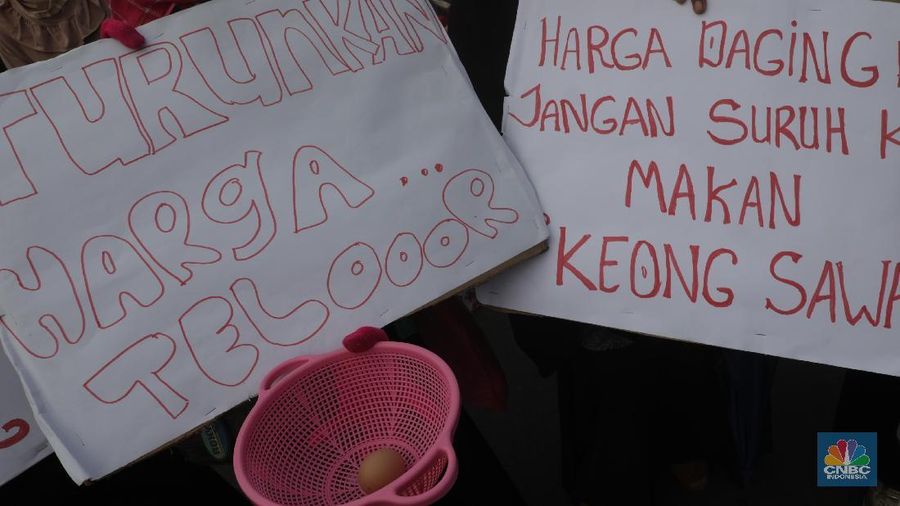 TURUNKAN
HARGA...
TELOOOR
HARGA DAGING
JANGAN SURUH K
MAKAN
KEONG SAWA
CNBC
INDONESIA